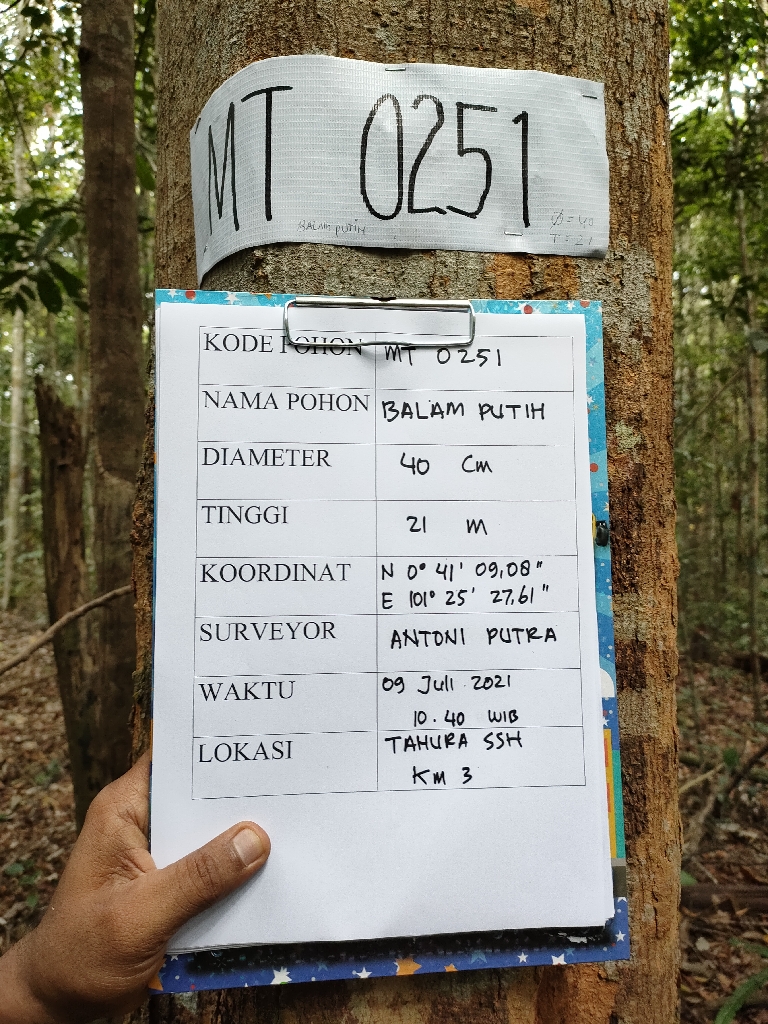 MT 0251
BALAM PUTIH
Ø = 40
T = 21
KODE POHON MT 0251
NAMA POHON BALAM PUTIH
DIAMETER 40 Cm
TINGGI 21 m
KOORDINAT N 0° 41' 09,08"
E 101° 25' 27,61"
SURVEYOR ANTONI PUTRA
WAKTU 09 Juli 2021
10.40 WIB
LOKASI TAHURA SSH
KM 3